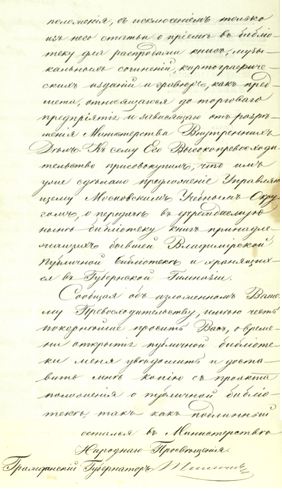 положения, съ исключеніемъ только
изъ него статьи о пріемѣ въ библіо-
теку для распродажи книгъ, музы-
кальныхъ сочиненій, картографиче-
скихъ изданій и гравюръ, какъ пред-
мета, относящагося до торговаго
предпріятія и зависящаго отъ разрѣ-
шенія Министерства Внутреннихъ
Дѣлъ. Къ сему Его Высокопревосходи-
тельство присовокупилъ, что имъ
уже сдѣлано предложеніе Управляю-
щему Московскимъ Учебнымъ Окру-
гомъ, о передачѣ въ учреждаемую
библіотеку книгъ принадле-
жащихъ бывшей Владимірской
Публичной библіотекѣ и хранящих-
ся въ Губернской Гимназіи.
Сообщая объ изложенномъ Ваше-
му Превосходительству, имѣю честь
покорнѣйше просить Васъ, о време-
ни открытія публичной библіоте-
ки меня увѣдомить и доста-
вить мнѣ копію съ проэкта
положенія о публичной библіо-
текѣ, такъ какъ подлинный
остался въ Министерствѣ
Народнаго Просвѣщенія.
Гражданскій Губернаторъ